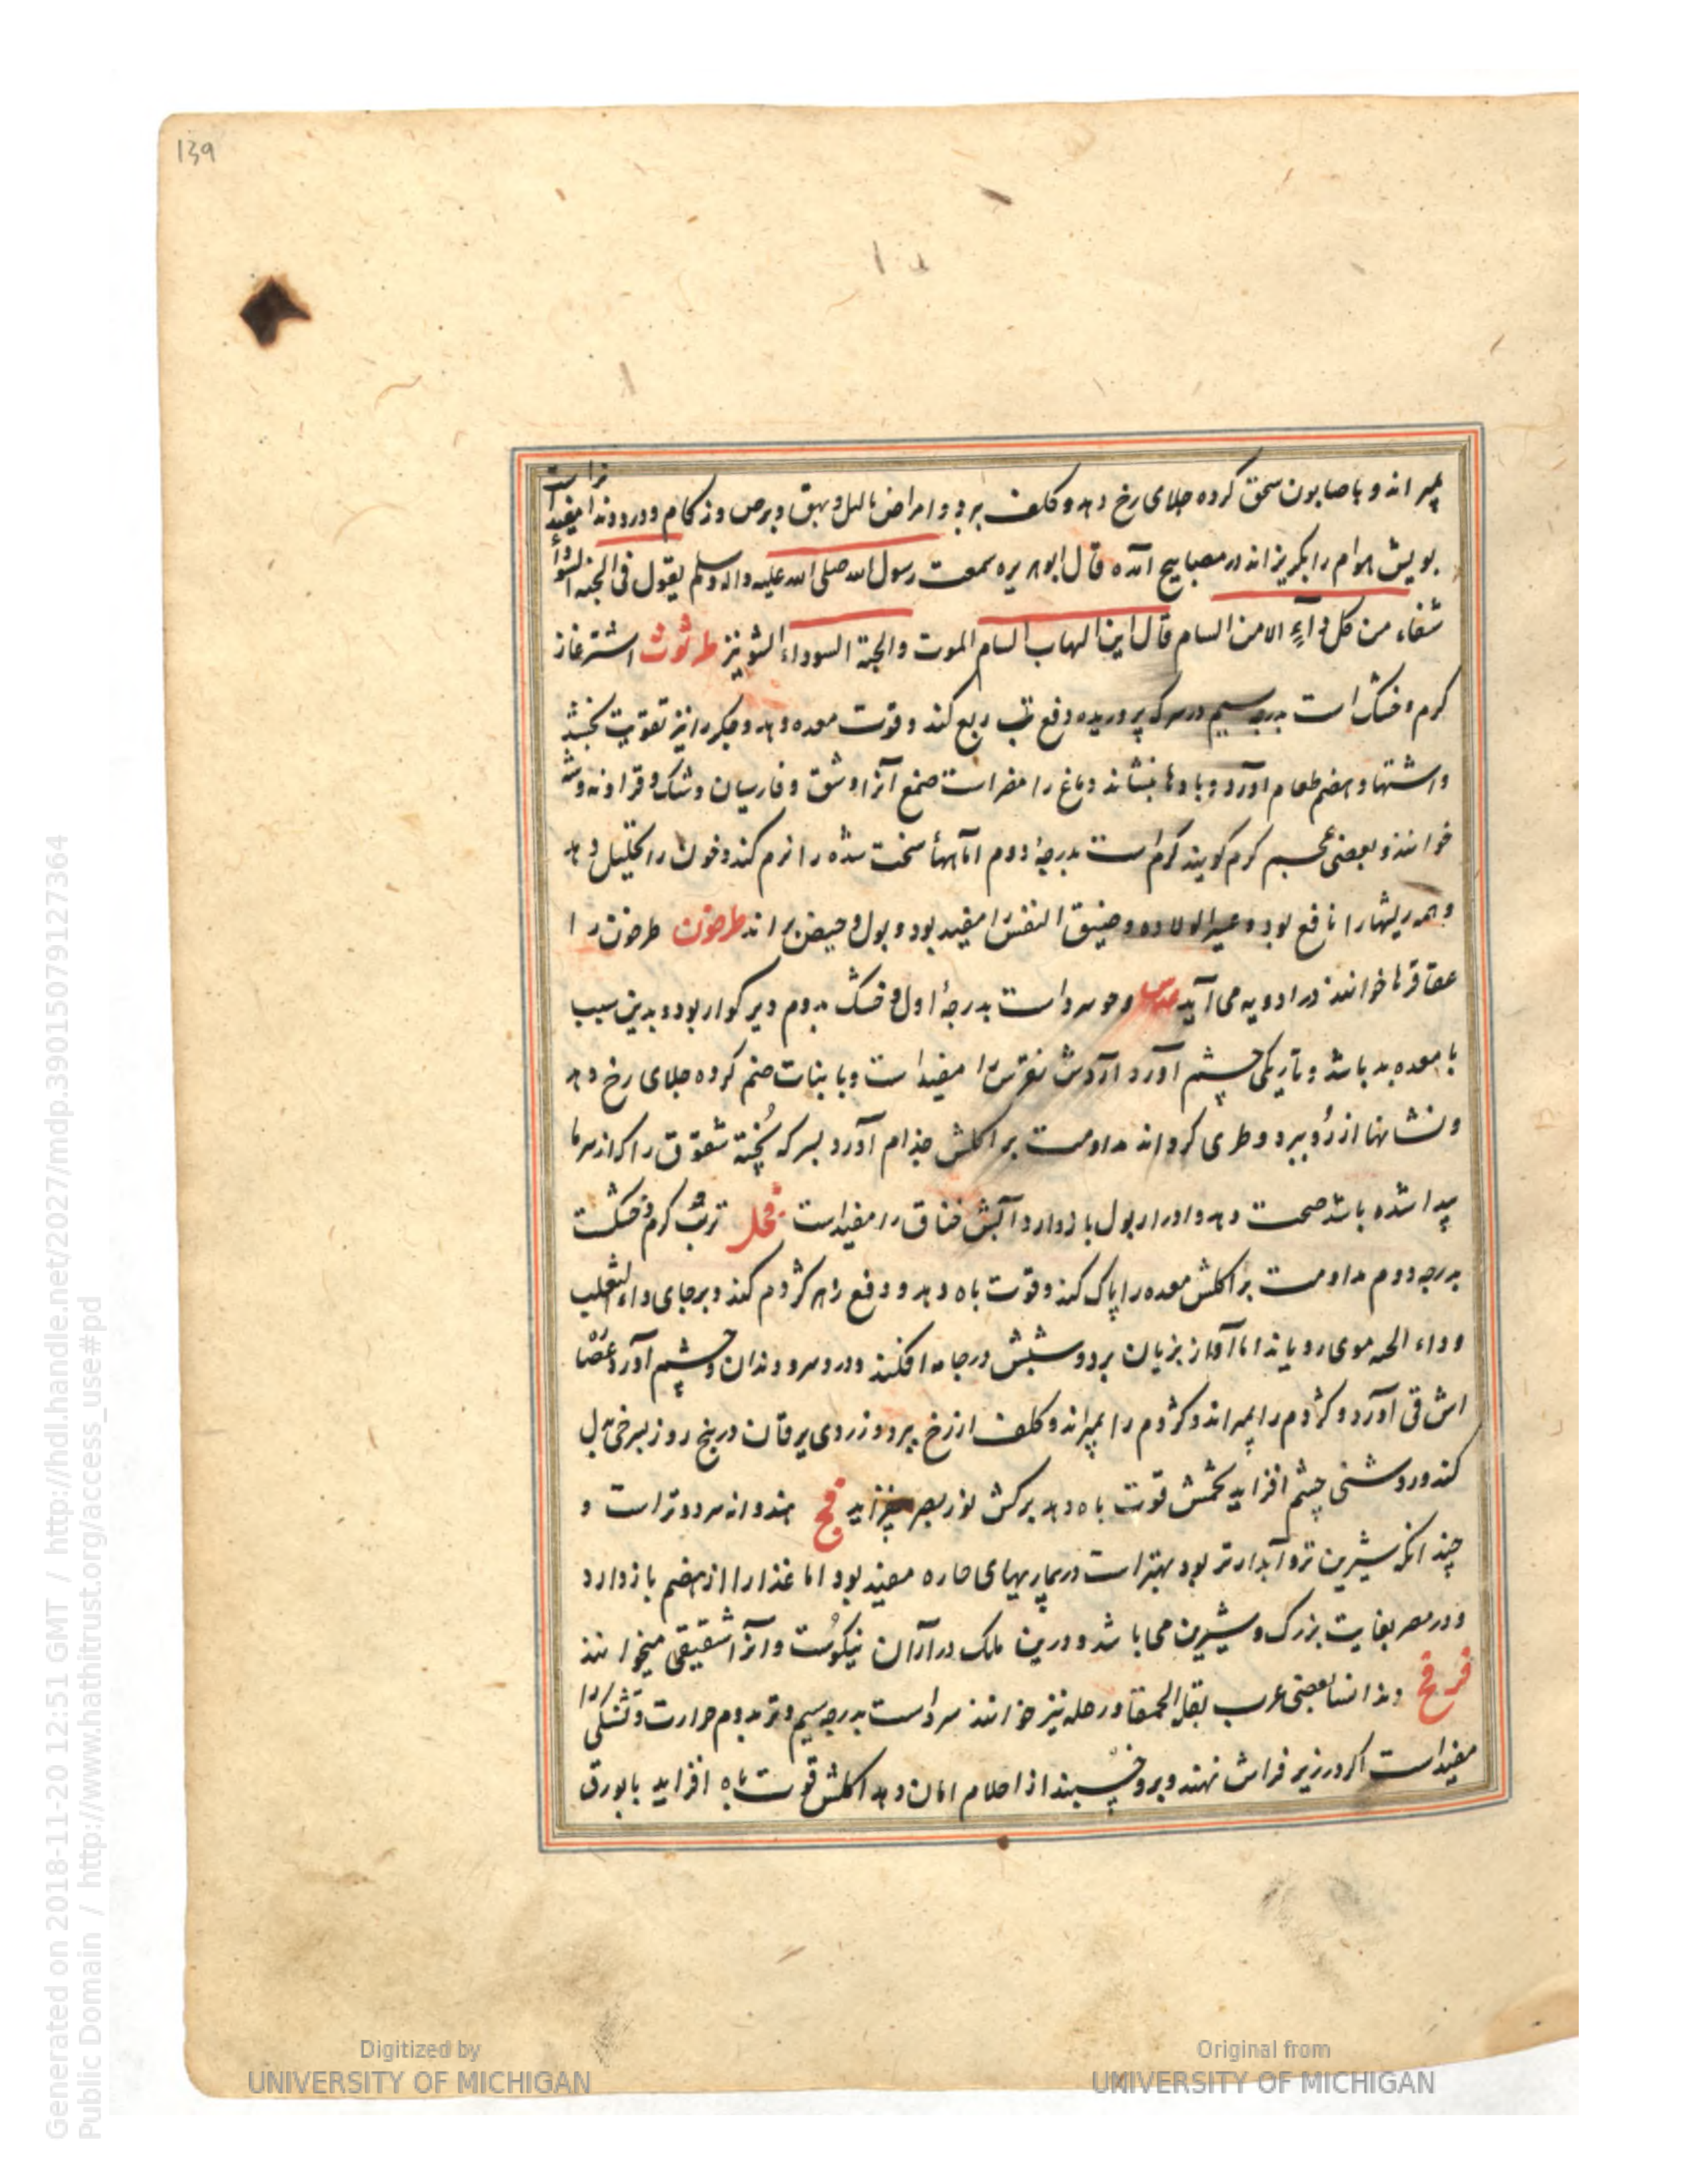 139
بمیراند و با صابون سحق کرده جلای رخ دهد و کلف ببرد و امراض ثالیل و بهق و برص و زکام و درد دندان را مفید است
بویش هوام را بگریزاند در مصابیح آمده قال ابوهریره سمعت رسول الله صلی الله علیه و اله وسلم یقول فی الحبه السوداء
شفاء من کل داآءٍ الا من السام قال ابن الشهاب السام الموت والحبة السوداء الشونیز طرثوث اشترغاز
کرم و خشک است بدرجه سیم در سرکه پروریده دفع تب ربع کند و قوت معده دهد و جکر را نیز تقویت بخشد
واشتها و هضم طعام آورد و بادها بنشاند دماغ را مضر است صمغ آنرا وشق و فارسیان وشک و
خوانند و بعضی کرم کویند کرم است بدرجۀ دوم اماسهاء سخت شده را نرم کند و خون را تحلیل دهد
وهمه ریشها را نافع بود و عسر الولاده و ضیق النفس را مفید بود و بول و حیض براند طرخون طرخون را
عقاقرحا خوانند در ادویه می آید عدس سرد است بدرجۀ اول و خشک بدوم دیر کوار بود و بدین سبب
با معده بد باشد و تاریکی چشم آورد آردش نقرس را مفید است و با نبات ضم کرده جلای رخ دهد
ونشانها از رو ببرد و طری کرداند مداومت بر اکلش جذام آورد بسرکه پخته شقوق را که از سرما
پیدا شده باشد صحت دهد و ادرار بول بازدارد و آبش خناق را مفید است فجل ترب کرم و خشکست
بدرجه دوم مداومت بر اکلش معده را پاک کند و قوت باه دهد و دفع زهر کژدم کند و بر جای داء الثعلب
و داء الحیه موی رویاند اما آواز بزیان برد و شبش در جامه افکند و درد سر و دندان و چشم آورد عصا
اش قی آورد و کژدم را بمیراند و کژدم را بمیراند و کلف از رخ ببرد و زردی یرقان در پنج روز بسرخی بدل
کند و روشنی چشم افزاید تخمش قوت باه دهد برکش نور بصر بیفزاید فج هندوانه سرد و تر است و
چندانکه شیرین تر و آبدارتر بود بهتر است در بیماریهای حاره مفید بود اما غذا را از هضم بازدارد
و در مصر بغایت بزرک و شیرین می باشد و درین ملک در آران نیکوست و آنرا شقیقی میخوانند
فرفخ بعضی عرب بقل الحمقا و رجله نیز خوانند سرد است بدرجه سیم و تر بدوم حرارت و تشنکی را
مفید است اکر در زیر فراش نهند و برو خسپند از احلام امان دهد اکلش قوت باه افزاید با بورق
Generated on 2018-11-20 12:51 GMT / http://hdl.handle.net/2027/mdp.39015079127364
Public Domain / http://www.hathitrust.org/access_use#pd
Digitized by
UNIVERSITY OF MICHIGAN
Original from
UNIVERSITY OF MICHIGAN